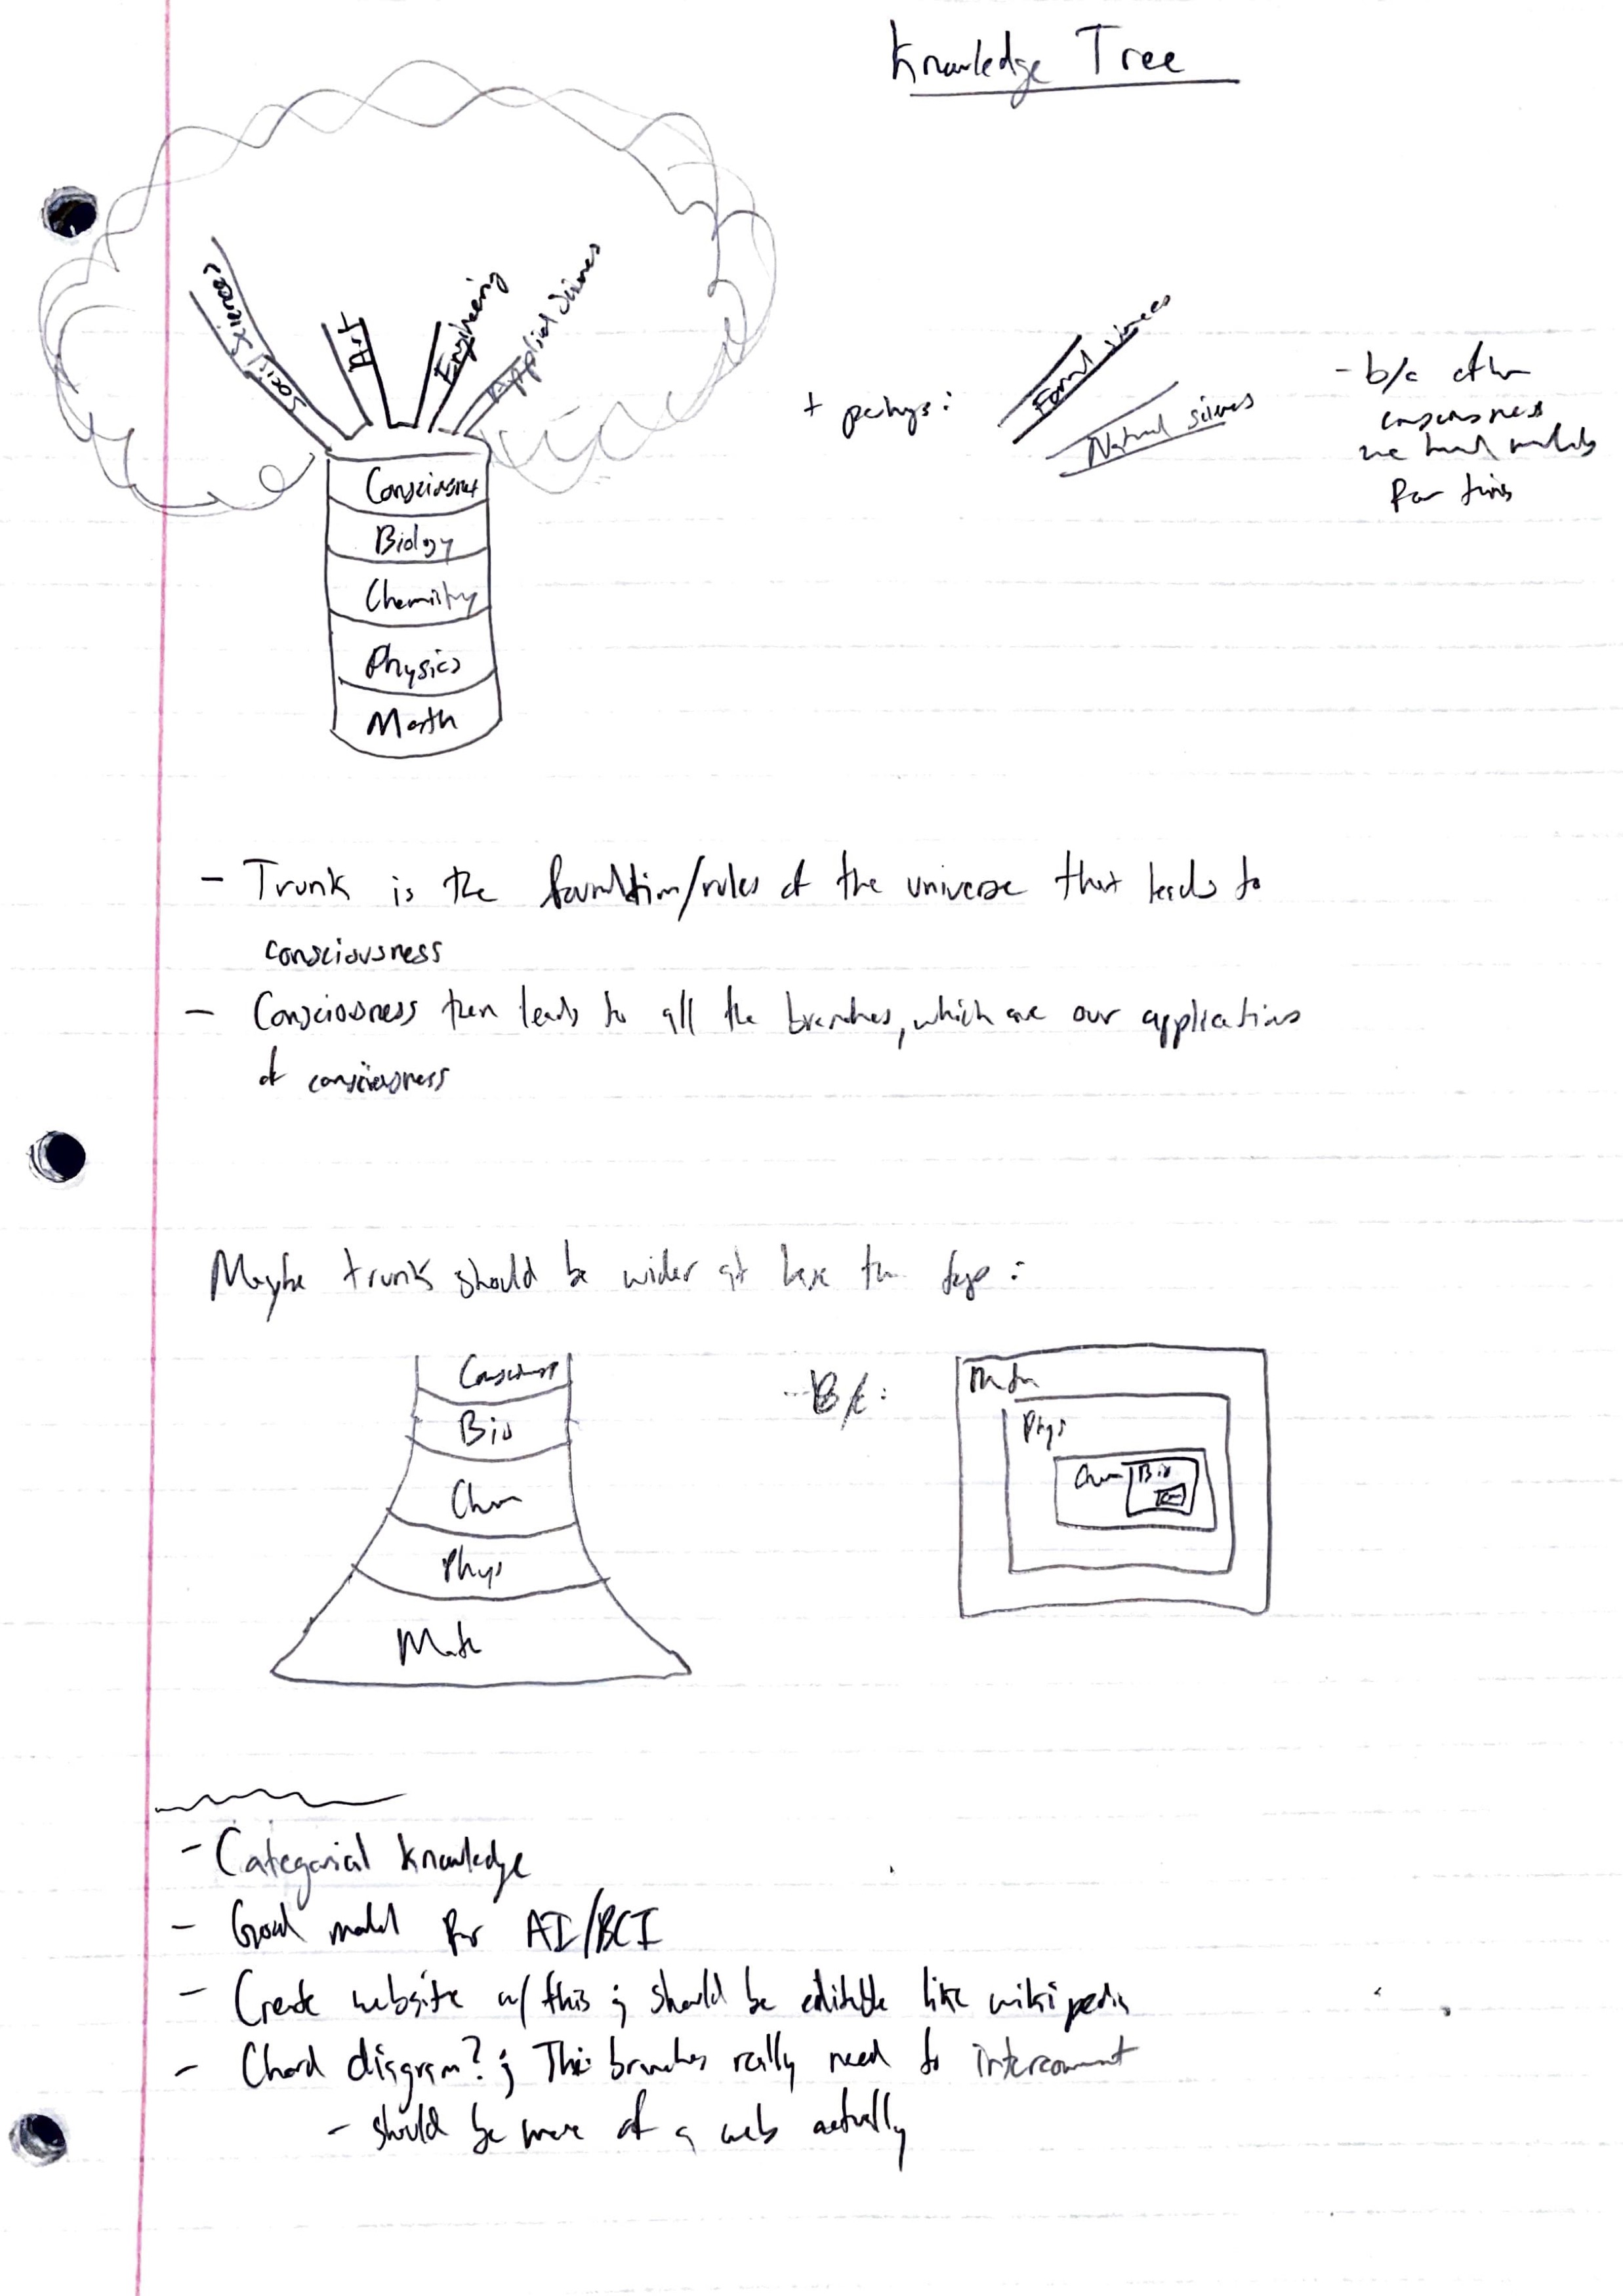 Knowledge Tree
Social Sciences
Art
Engineering
Applied Sciences
Consciousness
Biology
Chemistry
Physics
Math
+ perhaps:
Formal sciences
Natural sciences
- b/c after
consciousness
we build models
for this
- Trunk is the foundation/rules of the universe that leads to
consciousness
- Consciousness then leads to all the branches, which are our applications
of consciousness
Maybe trunk should be wider at base tho :
Consciousness
Bio
Chem
Phys
Math
- B/c:
Math
Phys
Chem
Bio
- Categorial knowledge
- Good model for AI/BCI
- Create website w/ this ; should be editable like wikipedia
- Chord diagram? ; The branches really need to interconnect
- should be more of a web actually